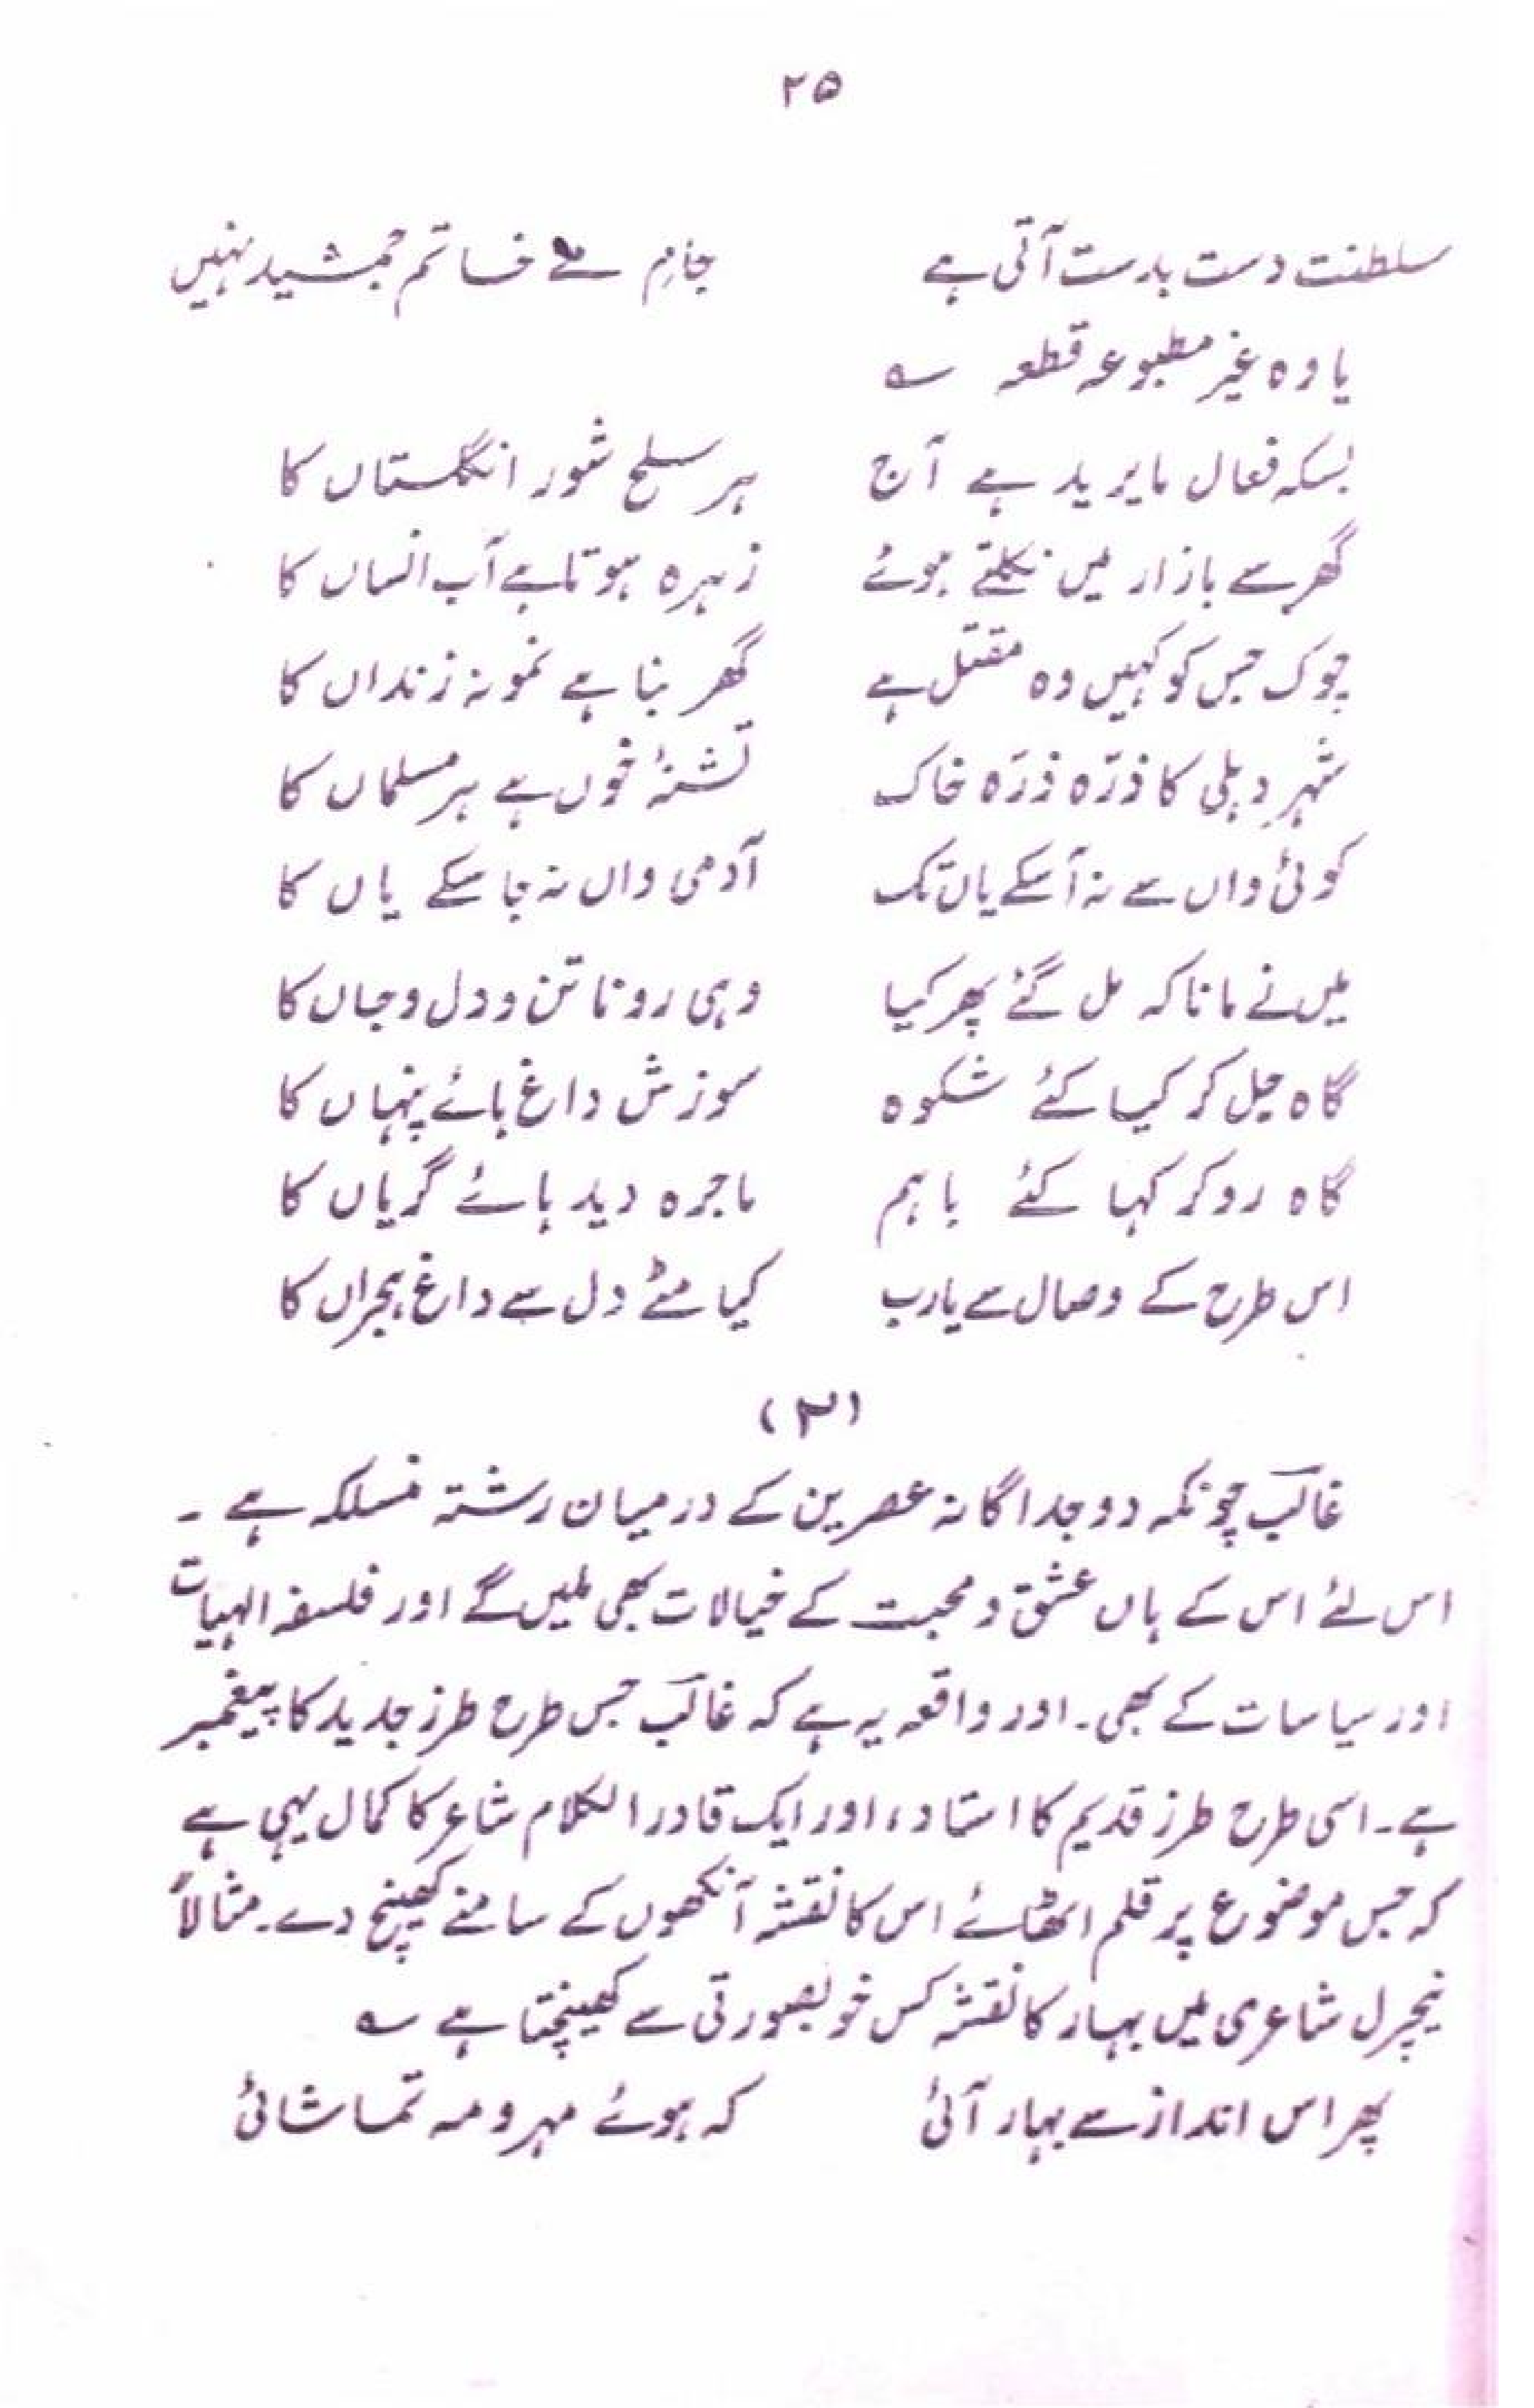 ۲۵
سلطنت دست بدست آتی ہے جامِ مے خاتم جمشید نہیں
یا وہ غیر مطبوعہ قطعہ ؎
بسکہ فعال مایرید ہے آج ہر سلح شور انگلستاں کا
گھر سے بازار میں نکلتے ہوئے زہرہ ہوتا ہے آب انساں کا
چوک جس کو کہیں وہ مقتل ہے گھر بنا ہے نمونہ زنداں کا
شہرِ دہلی کا ذرّہ ذرّہ خاک تشنۂ خوں ہے ہر مسلماں کا
کوئی واں سے نہ آسکے یاں تک آدمی واں نہ جا سکے یاں کا
میں نے مانا کہ مل گئے پھر کیا وہی رونا تن و دل و جاں کا
گاہ جل کر کیا کئے شکوہ سوزش داغ ہائے پنہاں کا
گاہ رو کر کہا کئے باہم ماجرہ دید ہائے گریاں کا
اس طرح کے وصال سے یارب کیا مٹے دل سے داغ ہجراں کا
(۳)
غالبؔ چونکہ دو جداگانہ عصرین کے درمیان رشتہ منسلکہ ہے ۔
اس لئے اس کے ہاں عشق و محبت کے خیالات بھی ملیں گے اور فلسفہ الہیات
اور سیاسات کے بھی ۔ اور واقعہ یہ ہے کہ غالبؔ جس طرح طرز جدید کا پیغمبر
ہے ۔ اسی طرح طرز قدیم کا استاد، اور ایک قادر الکلام شاعر کا کمال یہی ہے
کہ جس موضوع پر قلم اٹھائے اس کا نقشہ آنکھوں کے سامنے کھینچ دے ۔ مثالاً
نیچرل شاعری میں بہار کا نقشہ کس خوبصورتی سے کھینچتا ہے ؎
پھر اس انداز سے بہار آئی کہ ہوئے مہر و مہ تماشائی